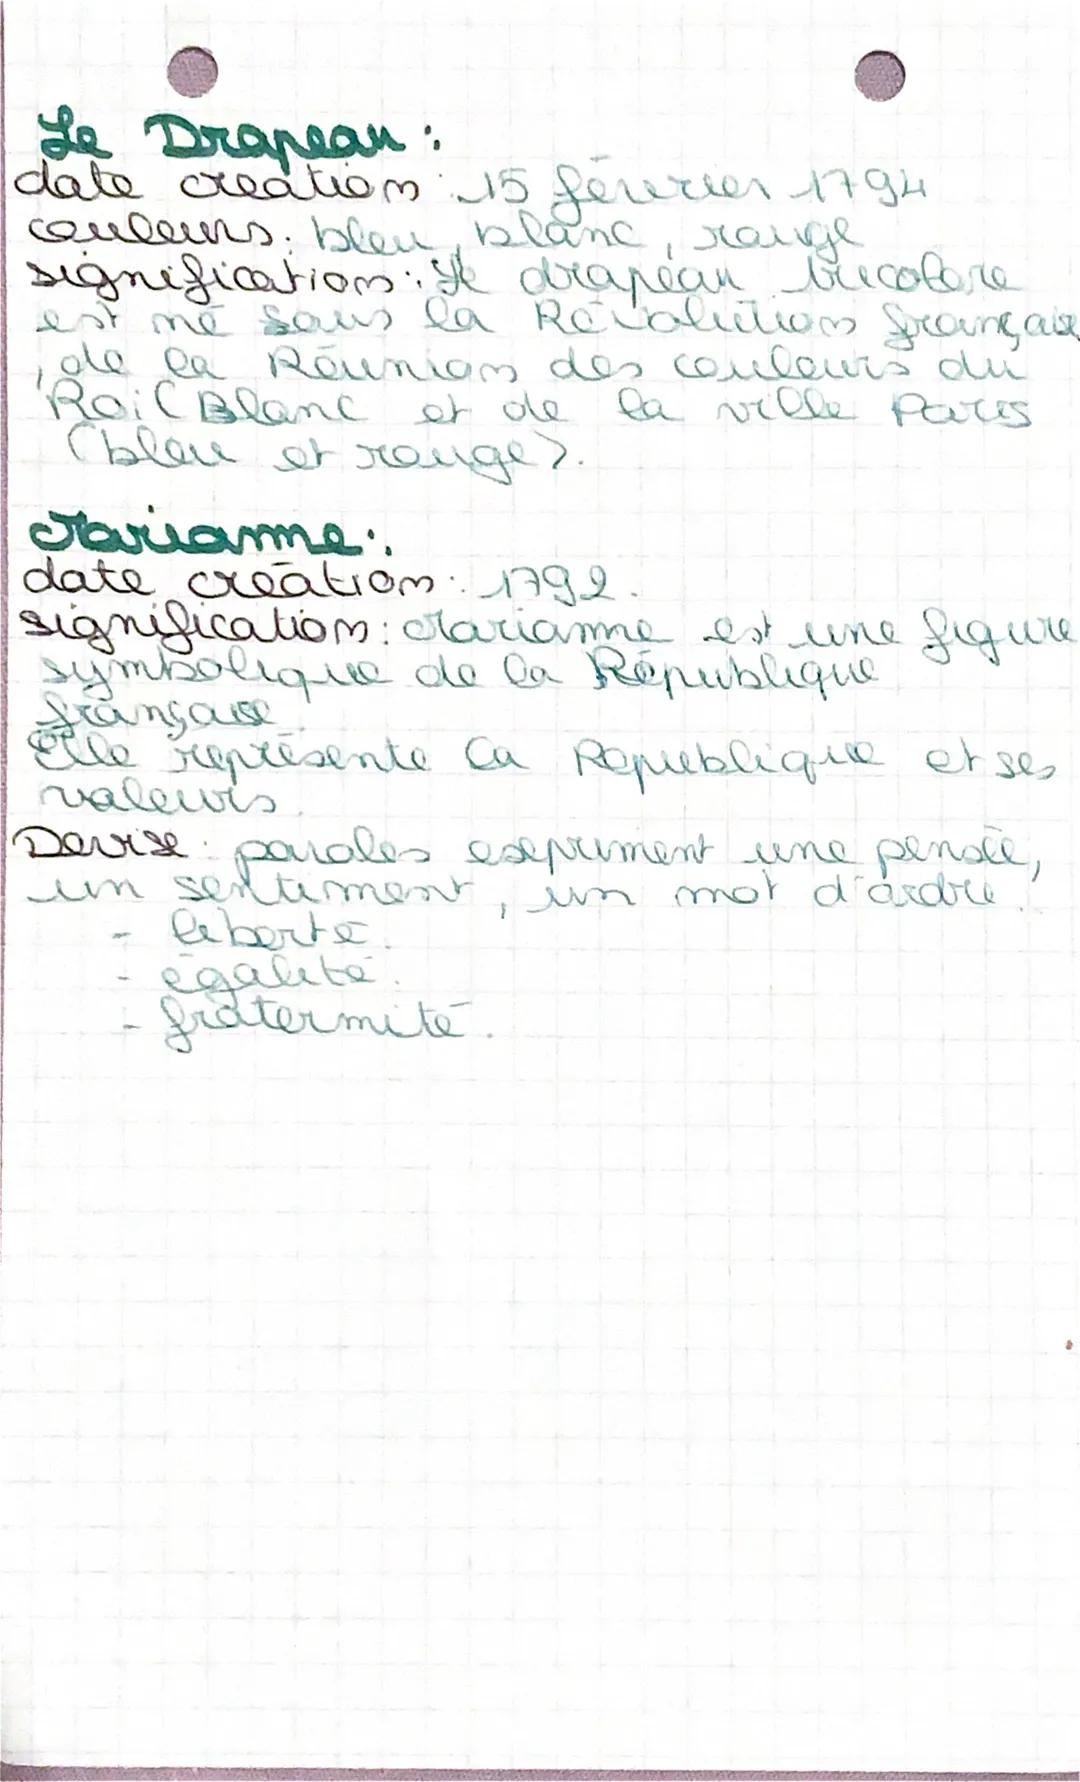 Le Drapeau :
date creation : 15 féverier 1794
couleurs : bleu, blanc, rouge
signification : Le drapeau tricolore
est né sous la Révolution française
, de la Réunion des couleurs du
Roi (Blanc et de la ville Paris
(bleu et rouge).
Marianne :
date création : 1792.
signification : Marianne est une figure
symbolique de la République
française
Elle représente la Republique et ses
valeurs.
Devise : paroles expriment une pensée,
un sentiment, un mot d'ordre.
- liberté.
- égalité.
- fraternité.